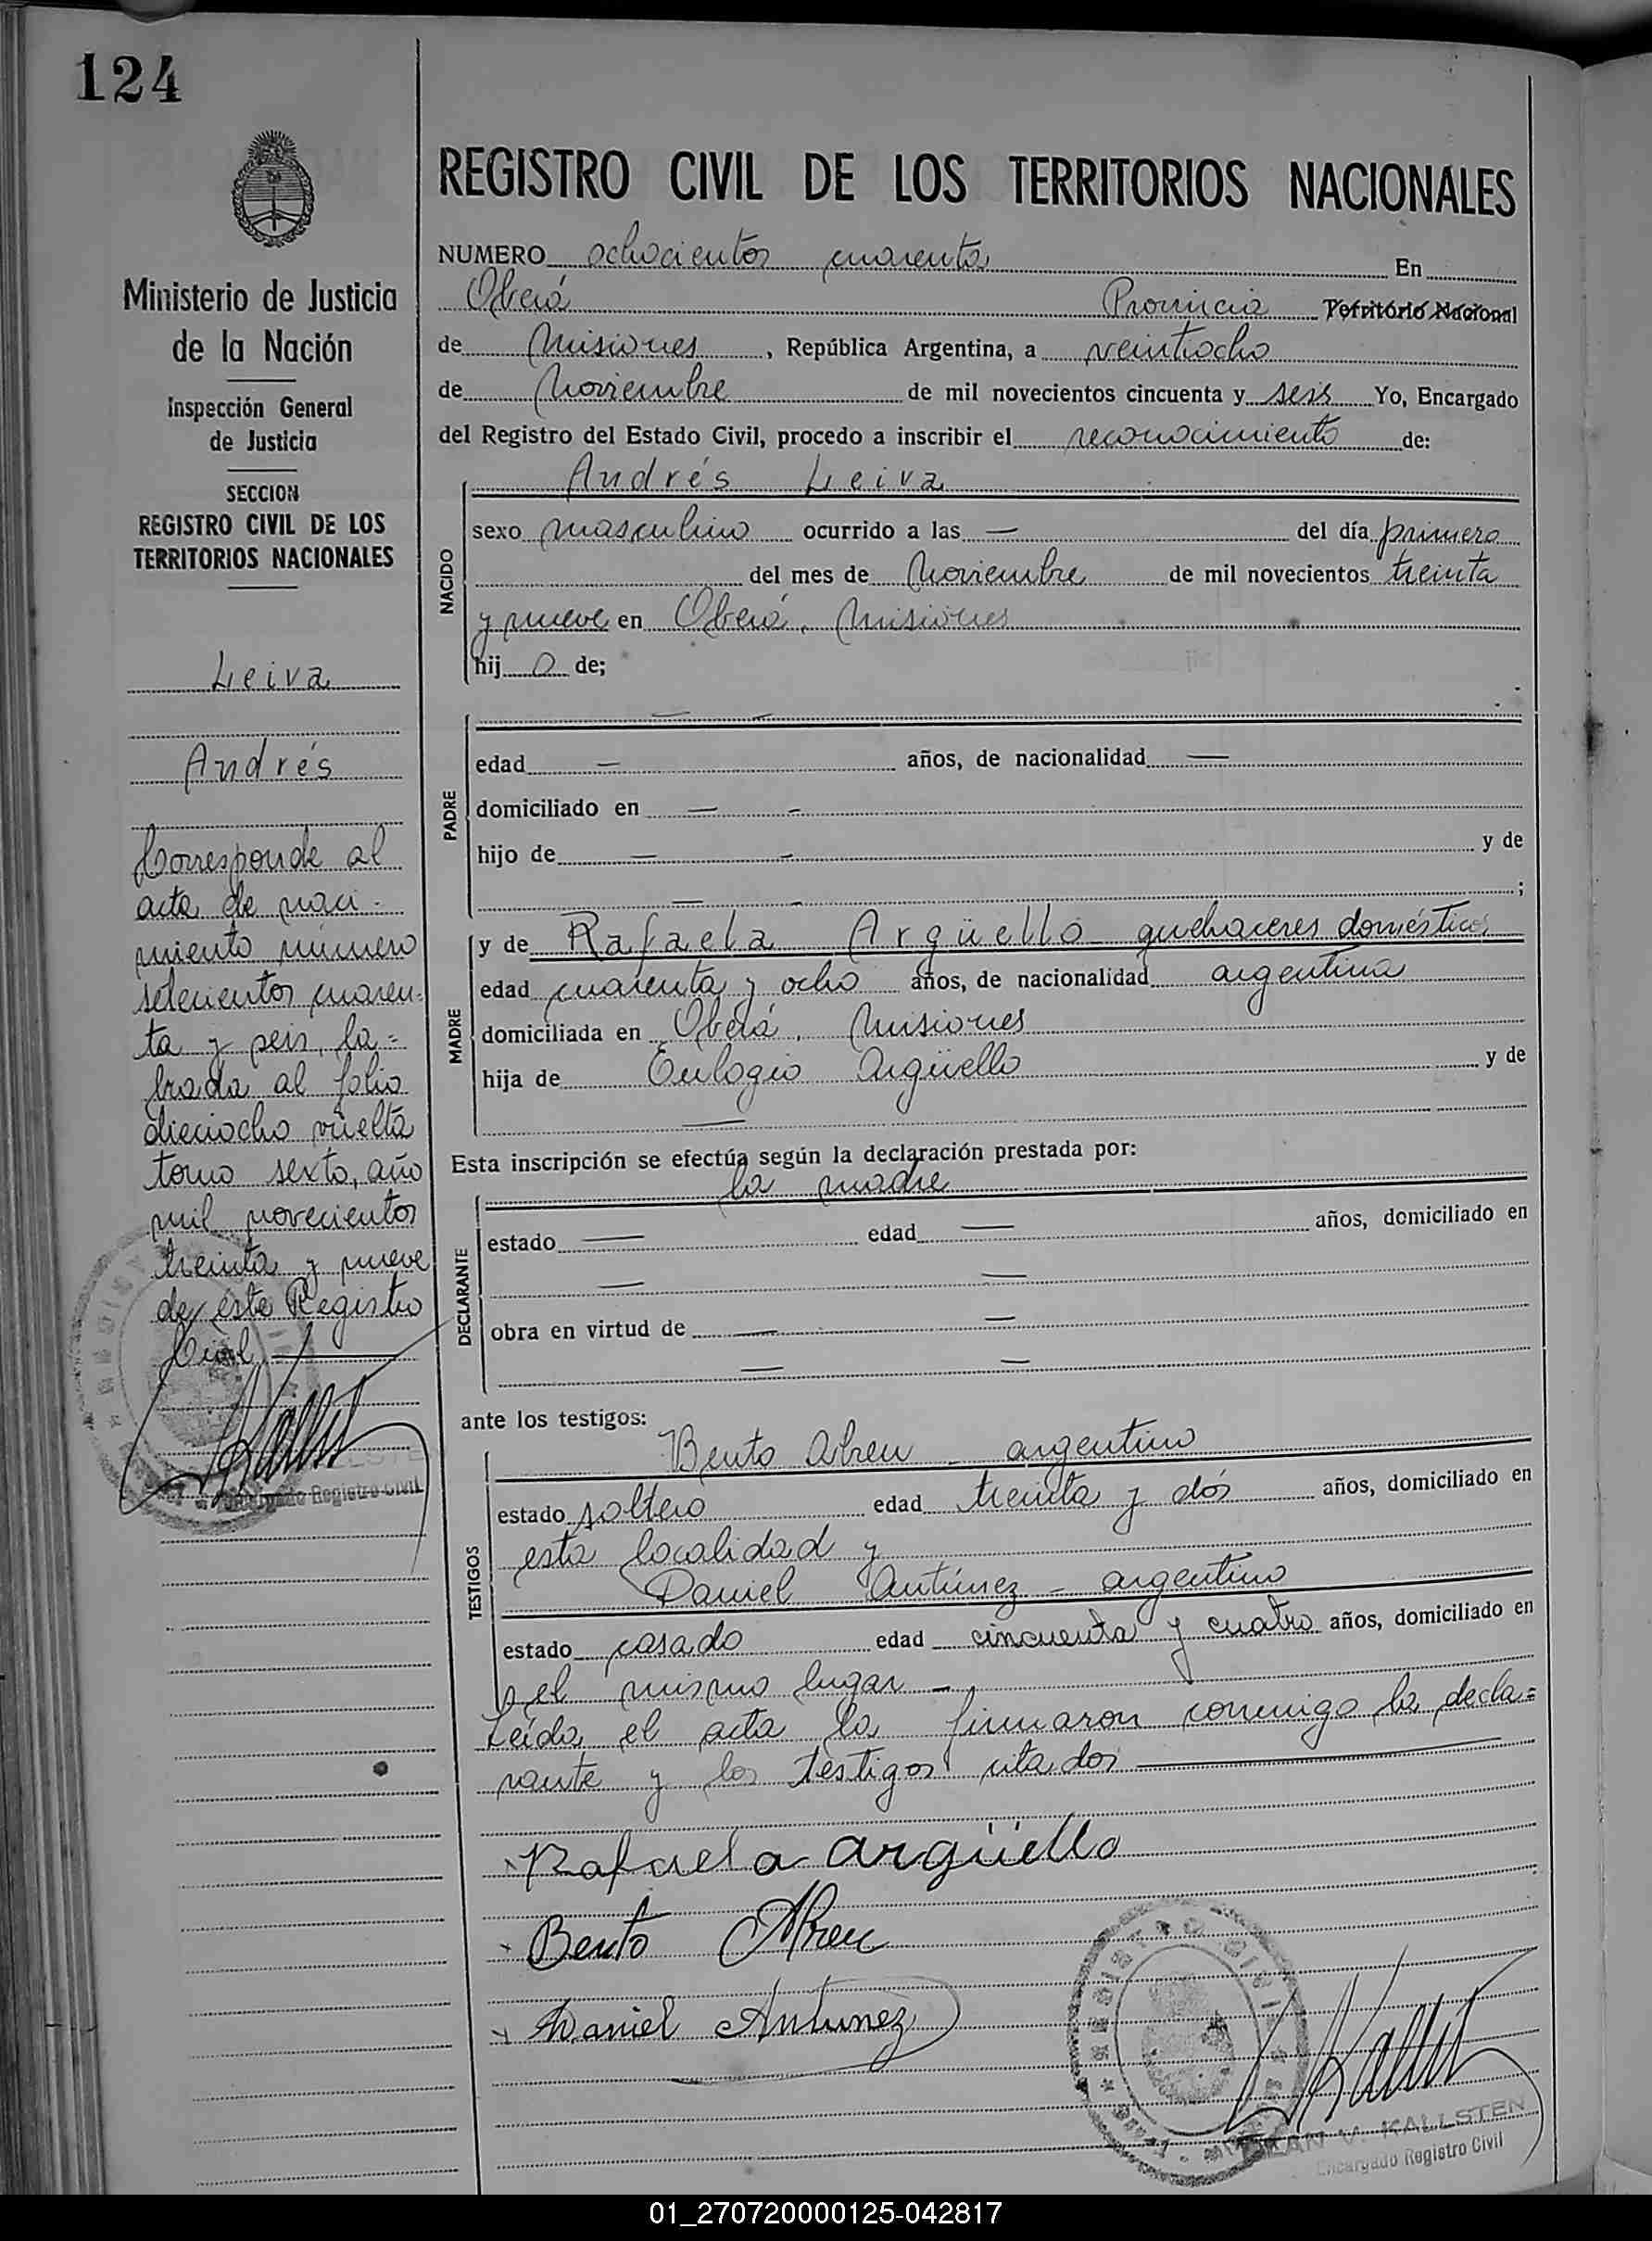 124
Ministerio de Justicia
de la Nación
Inspección General
de Justicia
SECCION
REGISTRO CIVIL DE LOS
TERRITORIOS NACIONALES
Leiva
Andrés
Corresponde al
acta de naci-
miento número
setecientos cuaren-
ta y seis, la=
brada al folio
dieciocho vuelta
tomo sexto, año
mil novecientos
treinta y nueve
de este Registro
Civil
Encargado Registro Civil
REGISTRO CIVIL DE LOS TERRITORIOS NACIONALES
NUMERO ochocientos cuarenta En
Oberá Provincia Territorio Nacional
de Misiones, República Argentina, a veintiocho
de Noviembre de mil novecientos cincuenta y seis Yo, Encargado
del Registro del Estado Civil, procedo a inscribir el reconocimiento de:
Andrés Leiva
NACIDO
sexo masculino ocurrido a las — del día primero
del mes de Noviembre de mil novecientos treinta
y nueve en Oberá, Misiones
hij o de;
PADRE
— —
edad — años, de nacionalidad —
domiciliado en — —
hijo de — — y de
— — ;
MADRE
y de Rafaela Argüello quehaceres domésticos
edad cuarenta y ocho años, de nacionalidad argentina
domiciliada en Oberá, Misiones
hija de Eulogio Argüello y de
—
Esta inscripción se efectúa según la declaración prestada por:
la madre
DECLARANTE
estado — edad — años, domiciliado en
— —
obra en virtud de — —
— —
ante los testigos:
TESTIGOS
Bento Abreu - argentino
estado soltero edad treinta y dós años, domiciliado en
esta localidad y
Daniel Antúnez - argentino
estado casado edad cincuenta y cuatro años, domiciliado en
el mismo lugar -
Leída el acta la firmaron conmigo la decla=
rante y los testigos citados
Rafaela argüello
Bento Abreu
Daniel Antunez
REGISTRO CIVIL
V. KALLSTEN
Encargado Registro Civil
01_270720000125-042817